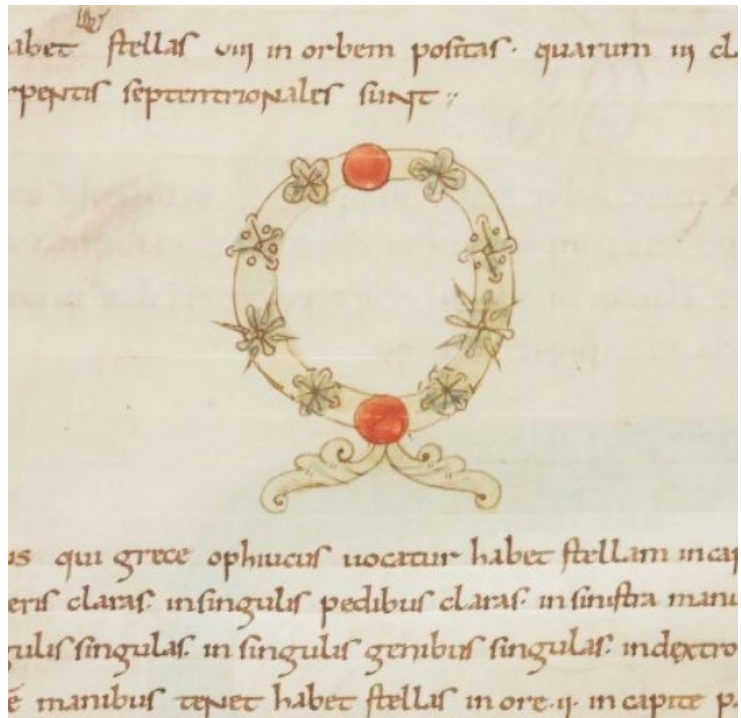 abet stellas viii in orbem positas. quarum iii cl
rpentis septentrionales sunt
us qui grece ophiucus uocatur habet stellam in cap
eris claras. in singulis pedibus claras. in sinistra manu
gulis singulas. in singulis genibus singulas. in dextro
ē manibus tenet habet stellas in ore .ii. in capite p